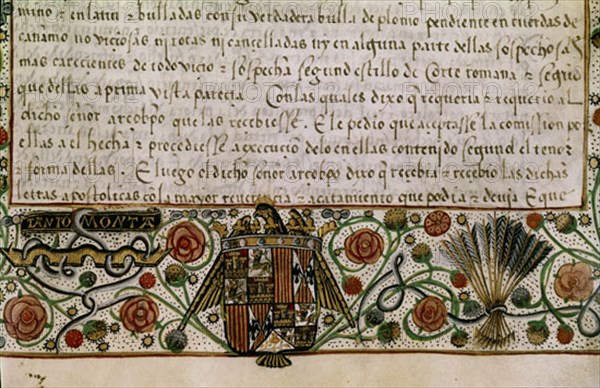 mino ꝛ en latin ꝛ bulladas con su verdadera bulla de plomo pendiente en cuerdas de
cañamo no viciosas ni rotas ni cancelladas ny en alguna parte dellas sospechosas
mas carecientes de todo vicio ꝛ sospecha segund estillo de Corte romana ꝛ segud
que dellas a prima vista parecia Con las quales dixo q̃ requeria ꝛ requerio al
dicho señor arcob̃po que las recibiesse. E le pedio que aceptasse la comission por
ellas a el hecha ꝛ procediesse a execucio delo en ellas contenido segund el tenor
ꝛ forma dellas. E luego el dicho señor arcob̃po dixo q̃ recebia ꝛ recebio las dichas
letras apostolicas cõ la mayor reverencia ꝛ acatamiento que podia ꝛ devia E que
TANTO MONTA
PHOTO12